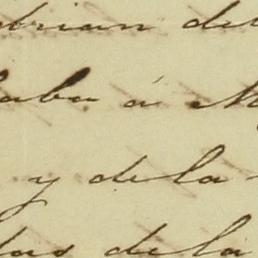 drian del
aba á
y de la
las de la